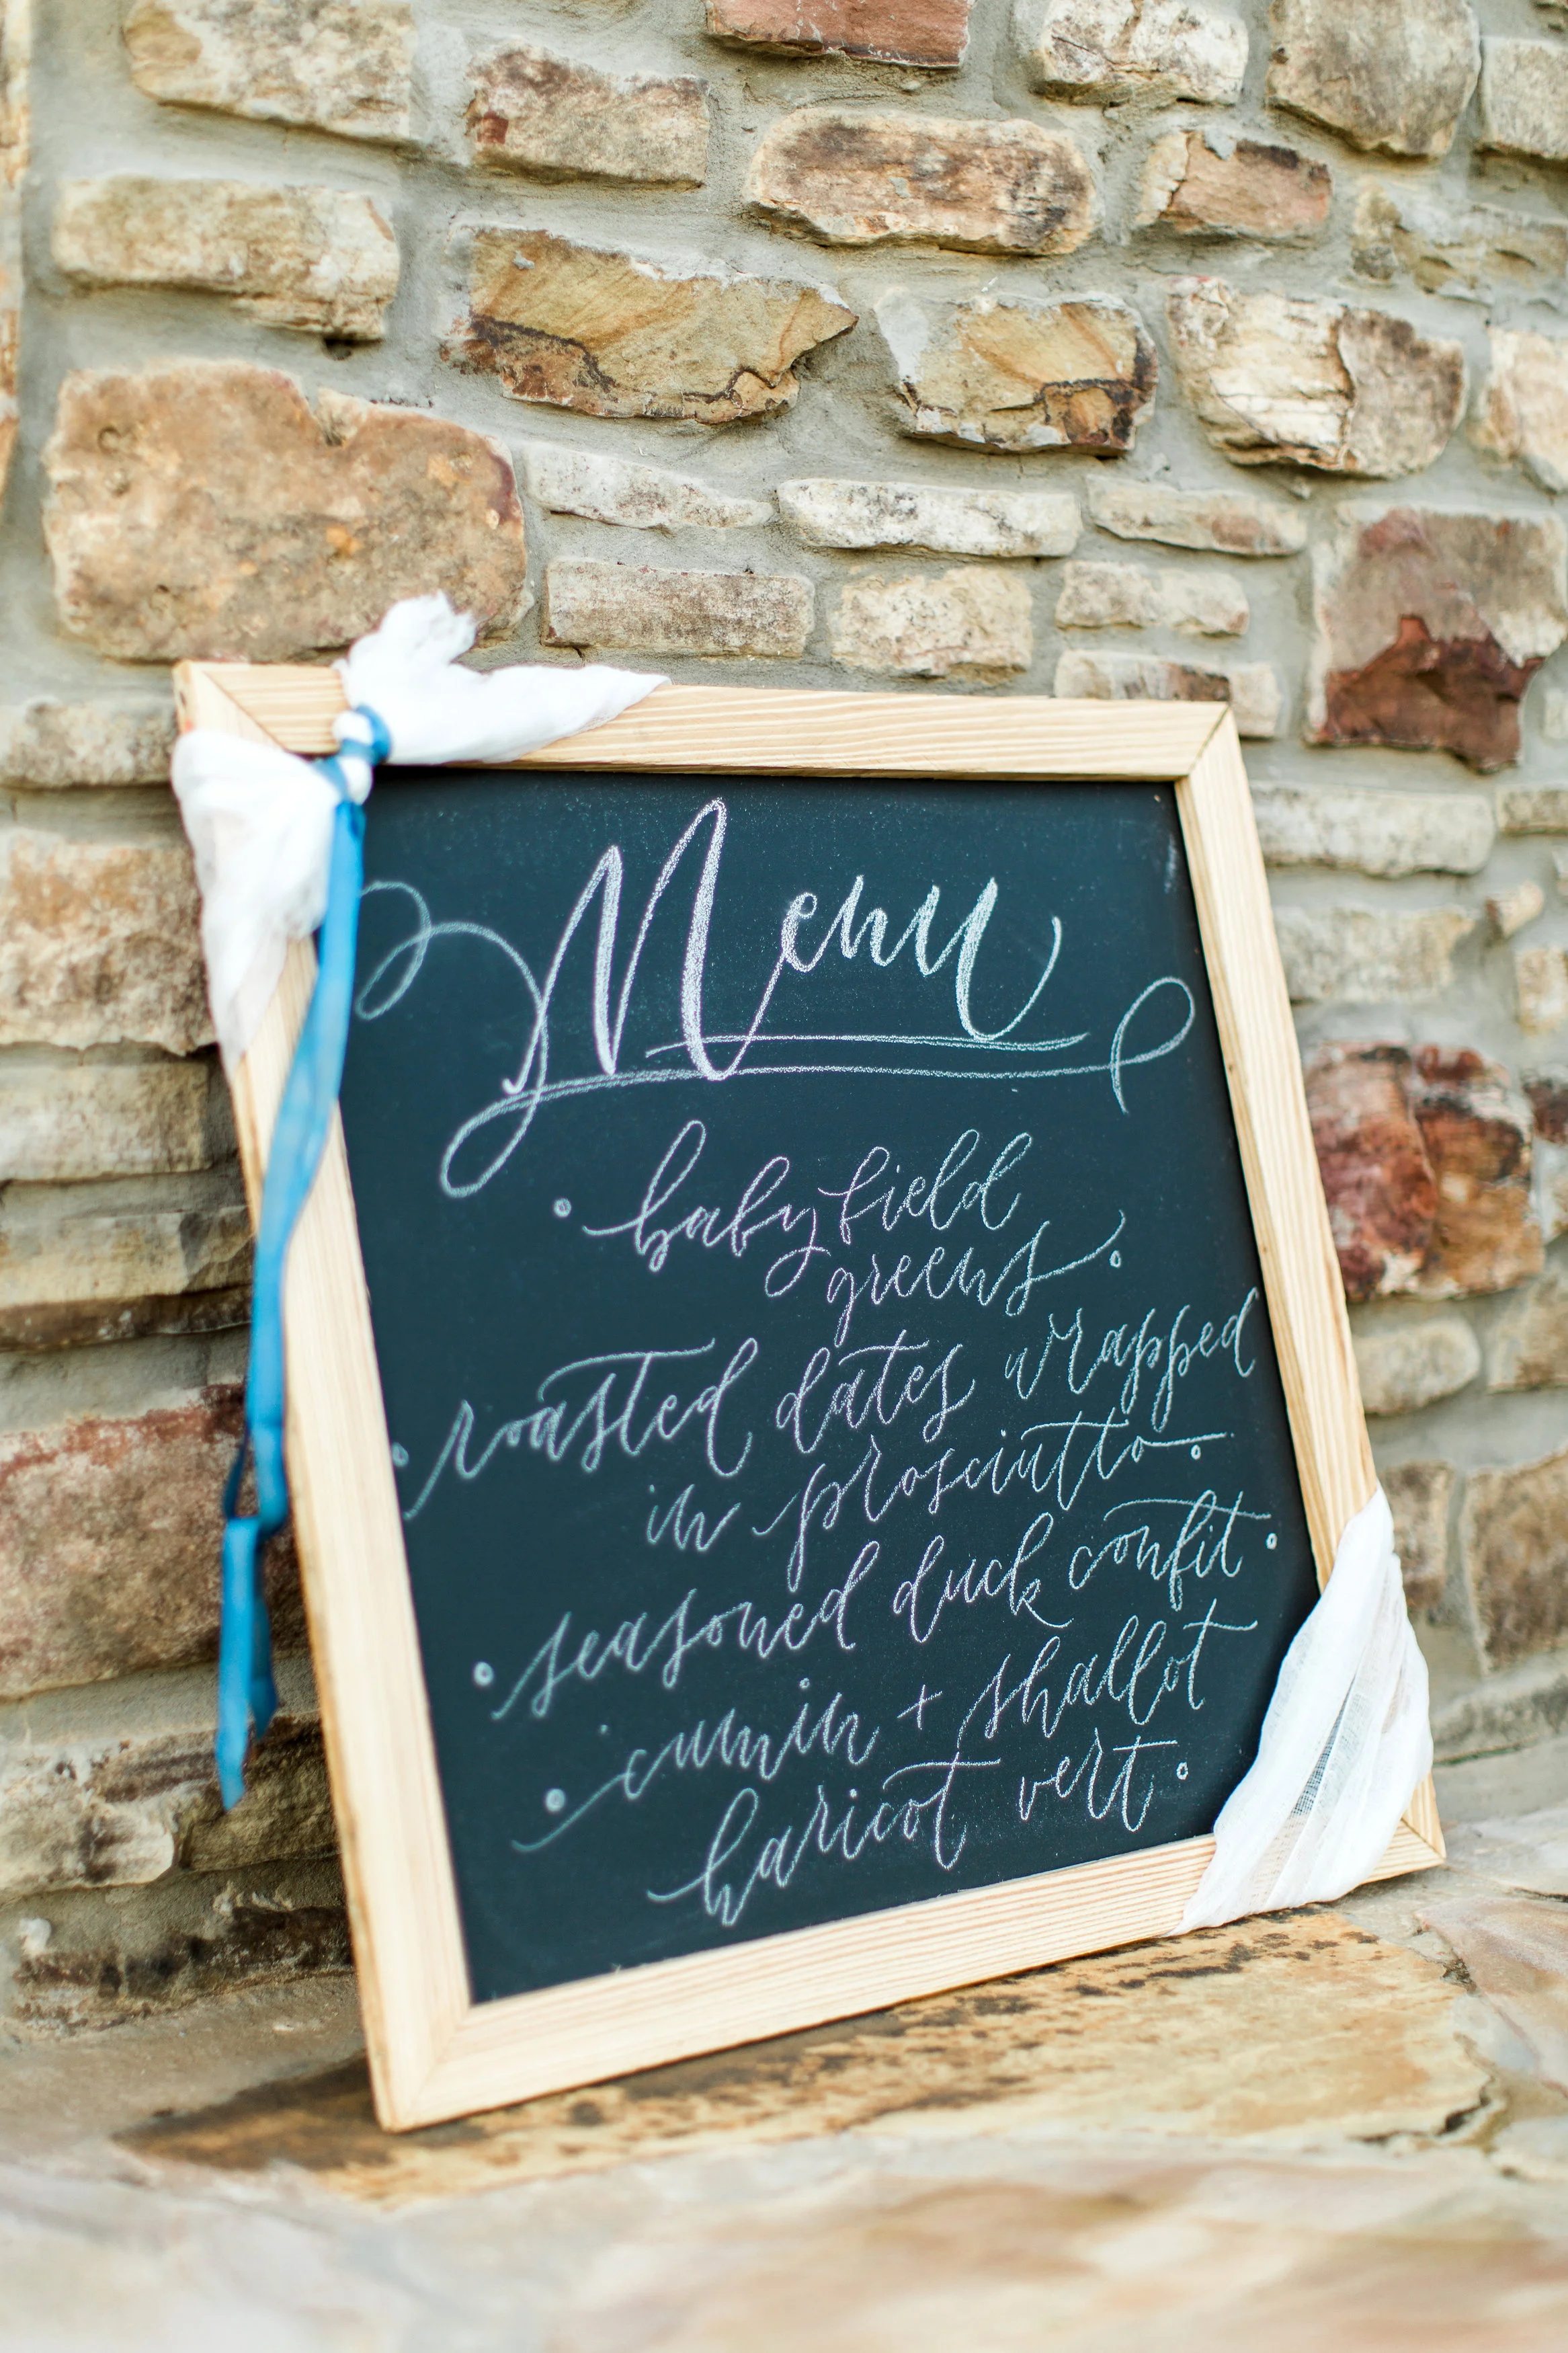 Menu
baby field
greens
roasted dates wrapped
in prosciutto
seasoned duck confit
cumin + shallot
haricot vert